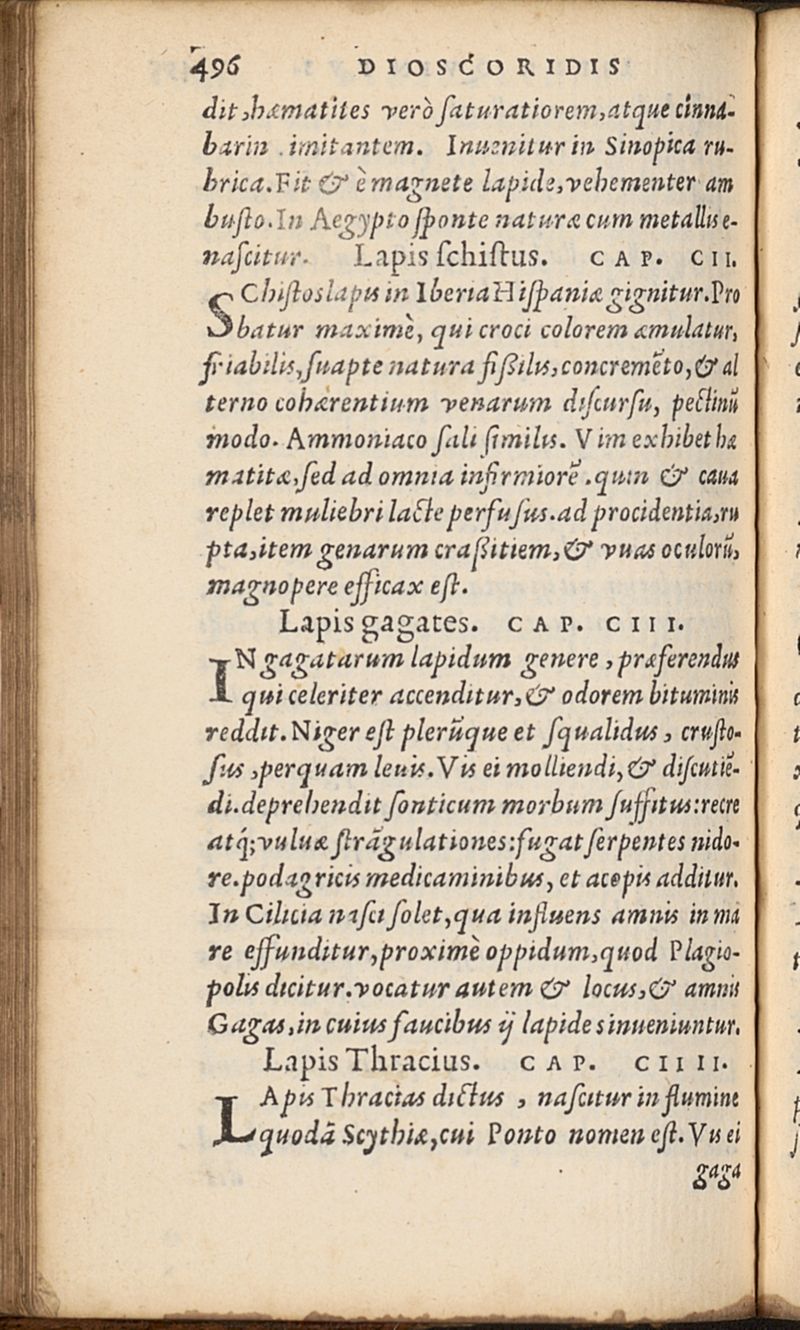 496 DIOSCORIDIS
dit,hæmatites verò ſaturatiorem,atque cinna-
barin imitantem. Inuenitur in Sinopica ru-
brica.Fit & è magnete lapide,vehementer am
buſto.In Aegypto ſponte naturæ cum metallis e-
naſcitur. Lapis ſchiſtus. CAP. CII.
SChiſtos lapis in Iberia Hiſpaniæ gignitur.Pro
batur maximè, qui croci colorem æmulatur,
friabilis,ſuapte natura fißilis,concremẽto,& al
terno cohærentium venarum diſcurſu, pectinũ
modo. Ammoniaco ſali ſimilis. Vim exhibet hæ
matitæ,ſed ad omnia infirmiorẽ.quin & caua
replet muliebri lacte perfuſus.ad procidentia,ru
pta,item genarum craßitiem,& vuas oculorũ,
magnopere efficax eſt.
Lapis gagates. CAP. CIII.
IN gagatarum lapidum genere, præferendus
qui celeriter accenditur,& odorem bituminis
reddit.Niger eſt plerũque et ſqualidus, cruſto-
ſus,perquam leuis.Vis ei molliendi,& diſcutiẽ-
di.deprehendit ſonticum morbum ſuffitus:recre
atq́;vuluæ ſtrãgulationes:fugat ſerpentes nido-
re.podagricis medicaminibus, et acopis additur.
In Cilicia naſci ſolet,qua influens amnis in ma
re effunditur,proximè oppidum,quod Plagio-
polis dicitur.vocatur autem & locus,& amnis
Gagas,in cuius faucibus ij lapides inueniuntur.
Lapis Thracius. CAP. CIIII.
LApis Thracias dictus, naſcitur in flumine
quodã Scythiæ,cui Ponto nomen eſt.Vis ei
gaga